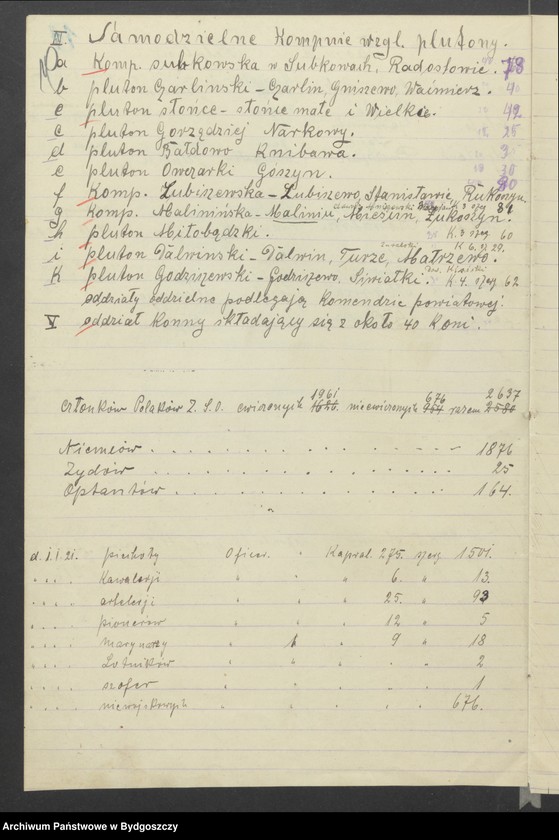 IV. Samodzielne Kompnie wzgl. plutony.
a Komp. subkowska w Subkowach, Radostowie. 78
b pluton Czarlinski - Czarlin, Gniszewo, Waćmierz. 40
c pluton słonce - słonce małe i Wielkie. 42
c pluton Gorzędziej Narkowy. 25
d pluton Bałdowo Knibawa. 9
e pluton Owczarki Goszyn. 30
f Komp. Lubiszewska - Lubiszewo, Stanisławie, Rukosyn. 90
g Komp. Malinińska - Malinin, Mieztin, Łukoszyn. 31
h pluton Miłobądzki. K. 3 szer 60
K. 6. sz 29.
i pluton Dalwinski - Dalwin, Turze, Małrzewo.
k pluton Godziszewski - Godziszewo, Siwiałki. K. 4. szer 62
oddziały oddzielno podlegają komendzie powiatowej.
V oddział konny składający się z około 40 koni.
1961 676 2637
Członków Polaków Z. S. O. cwiczonych 1626 niecwiczonych 954 razem 2580
Niemców . . . . . . . . . . . 1876
Żydów . . . . . . . . . . . 25
Optantów . . . . . . . . . . . 164.
d. 1. 1. 21. piechoty Oficer. " Kapral. 285. szer. 1501.
" " " " Kawalerji " " " 6. " 13.
" " " " artelerji " " " 25. " 93
" " " " pionerów " " " 12 " 5
" " " " marynarzy " 1 " 9 " 18
" " " " Lotników " " " " " 2
" " " " szofer " " " " " 1
" " " " niewojskowych 676.
Archiwum Państwowe w Bydgoszczy